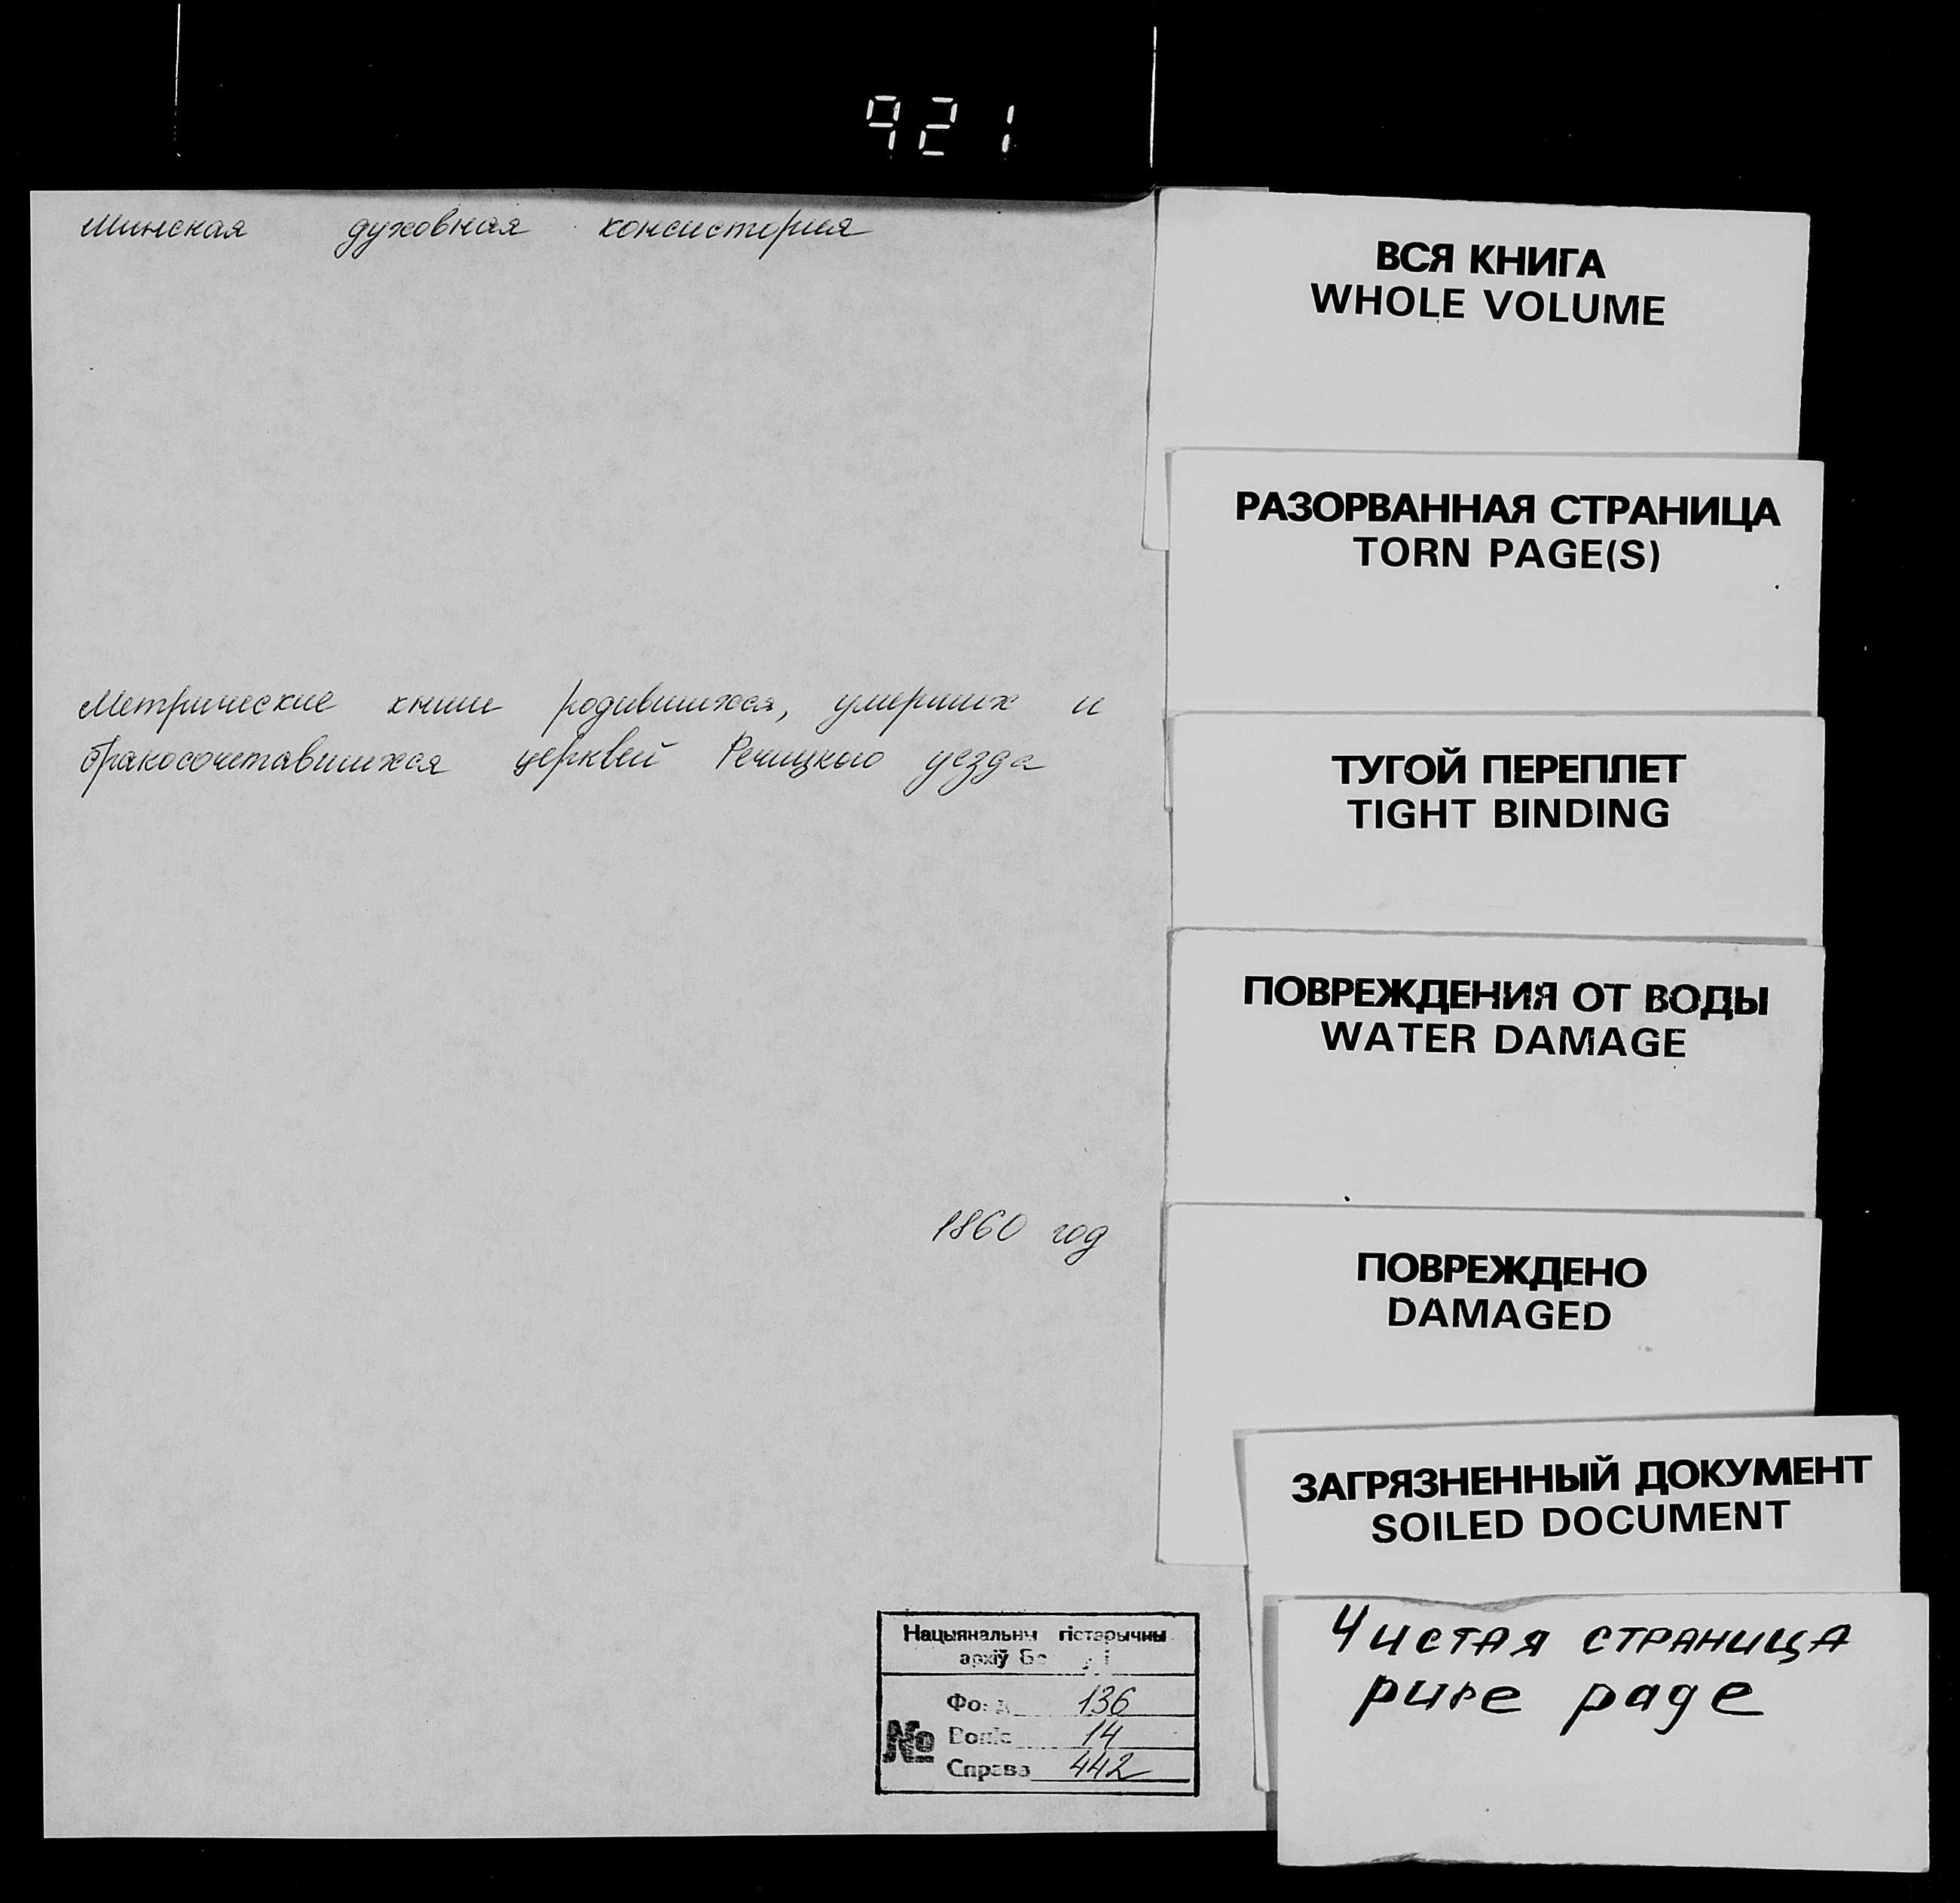 921
Минская духовная консистория
Метрические книги родившихся, умерших и
бракосочетавшихся церквей Речицкого уезда
1860 год
Нацыянальны гістарычны
архіў
Фонд 136
№ Вопіс 14
Справа 442
ВСЯ КНИГА
WHOLE VOLUME
РАЗОРВАННАЯ СТРАНИЦА
TORN PAGE(S)
ТУГОЙ ПЕРЕПЛЕТ
TIGHT BINDING
ПОВРЕЖДЕНИЯ ОТ ВОДЫ
WATER DAMAGE
ПОВРЕЖДЕНО
DAMAGED
ЗАГРЯЗНЕННЫЙ ДОКУМЕНТ
SOILED DOCUMENT
Чистая страница
pure page